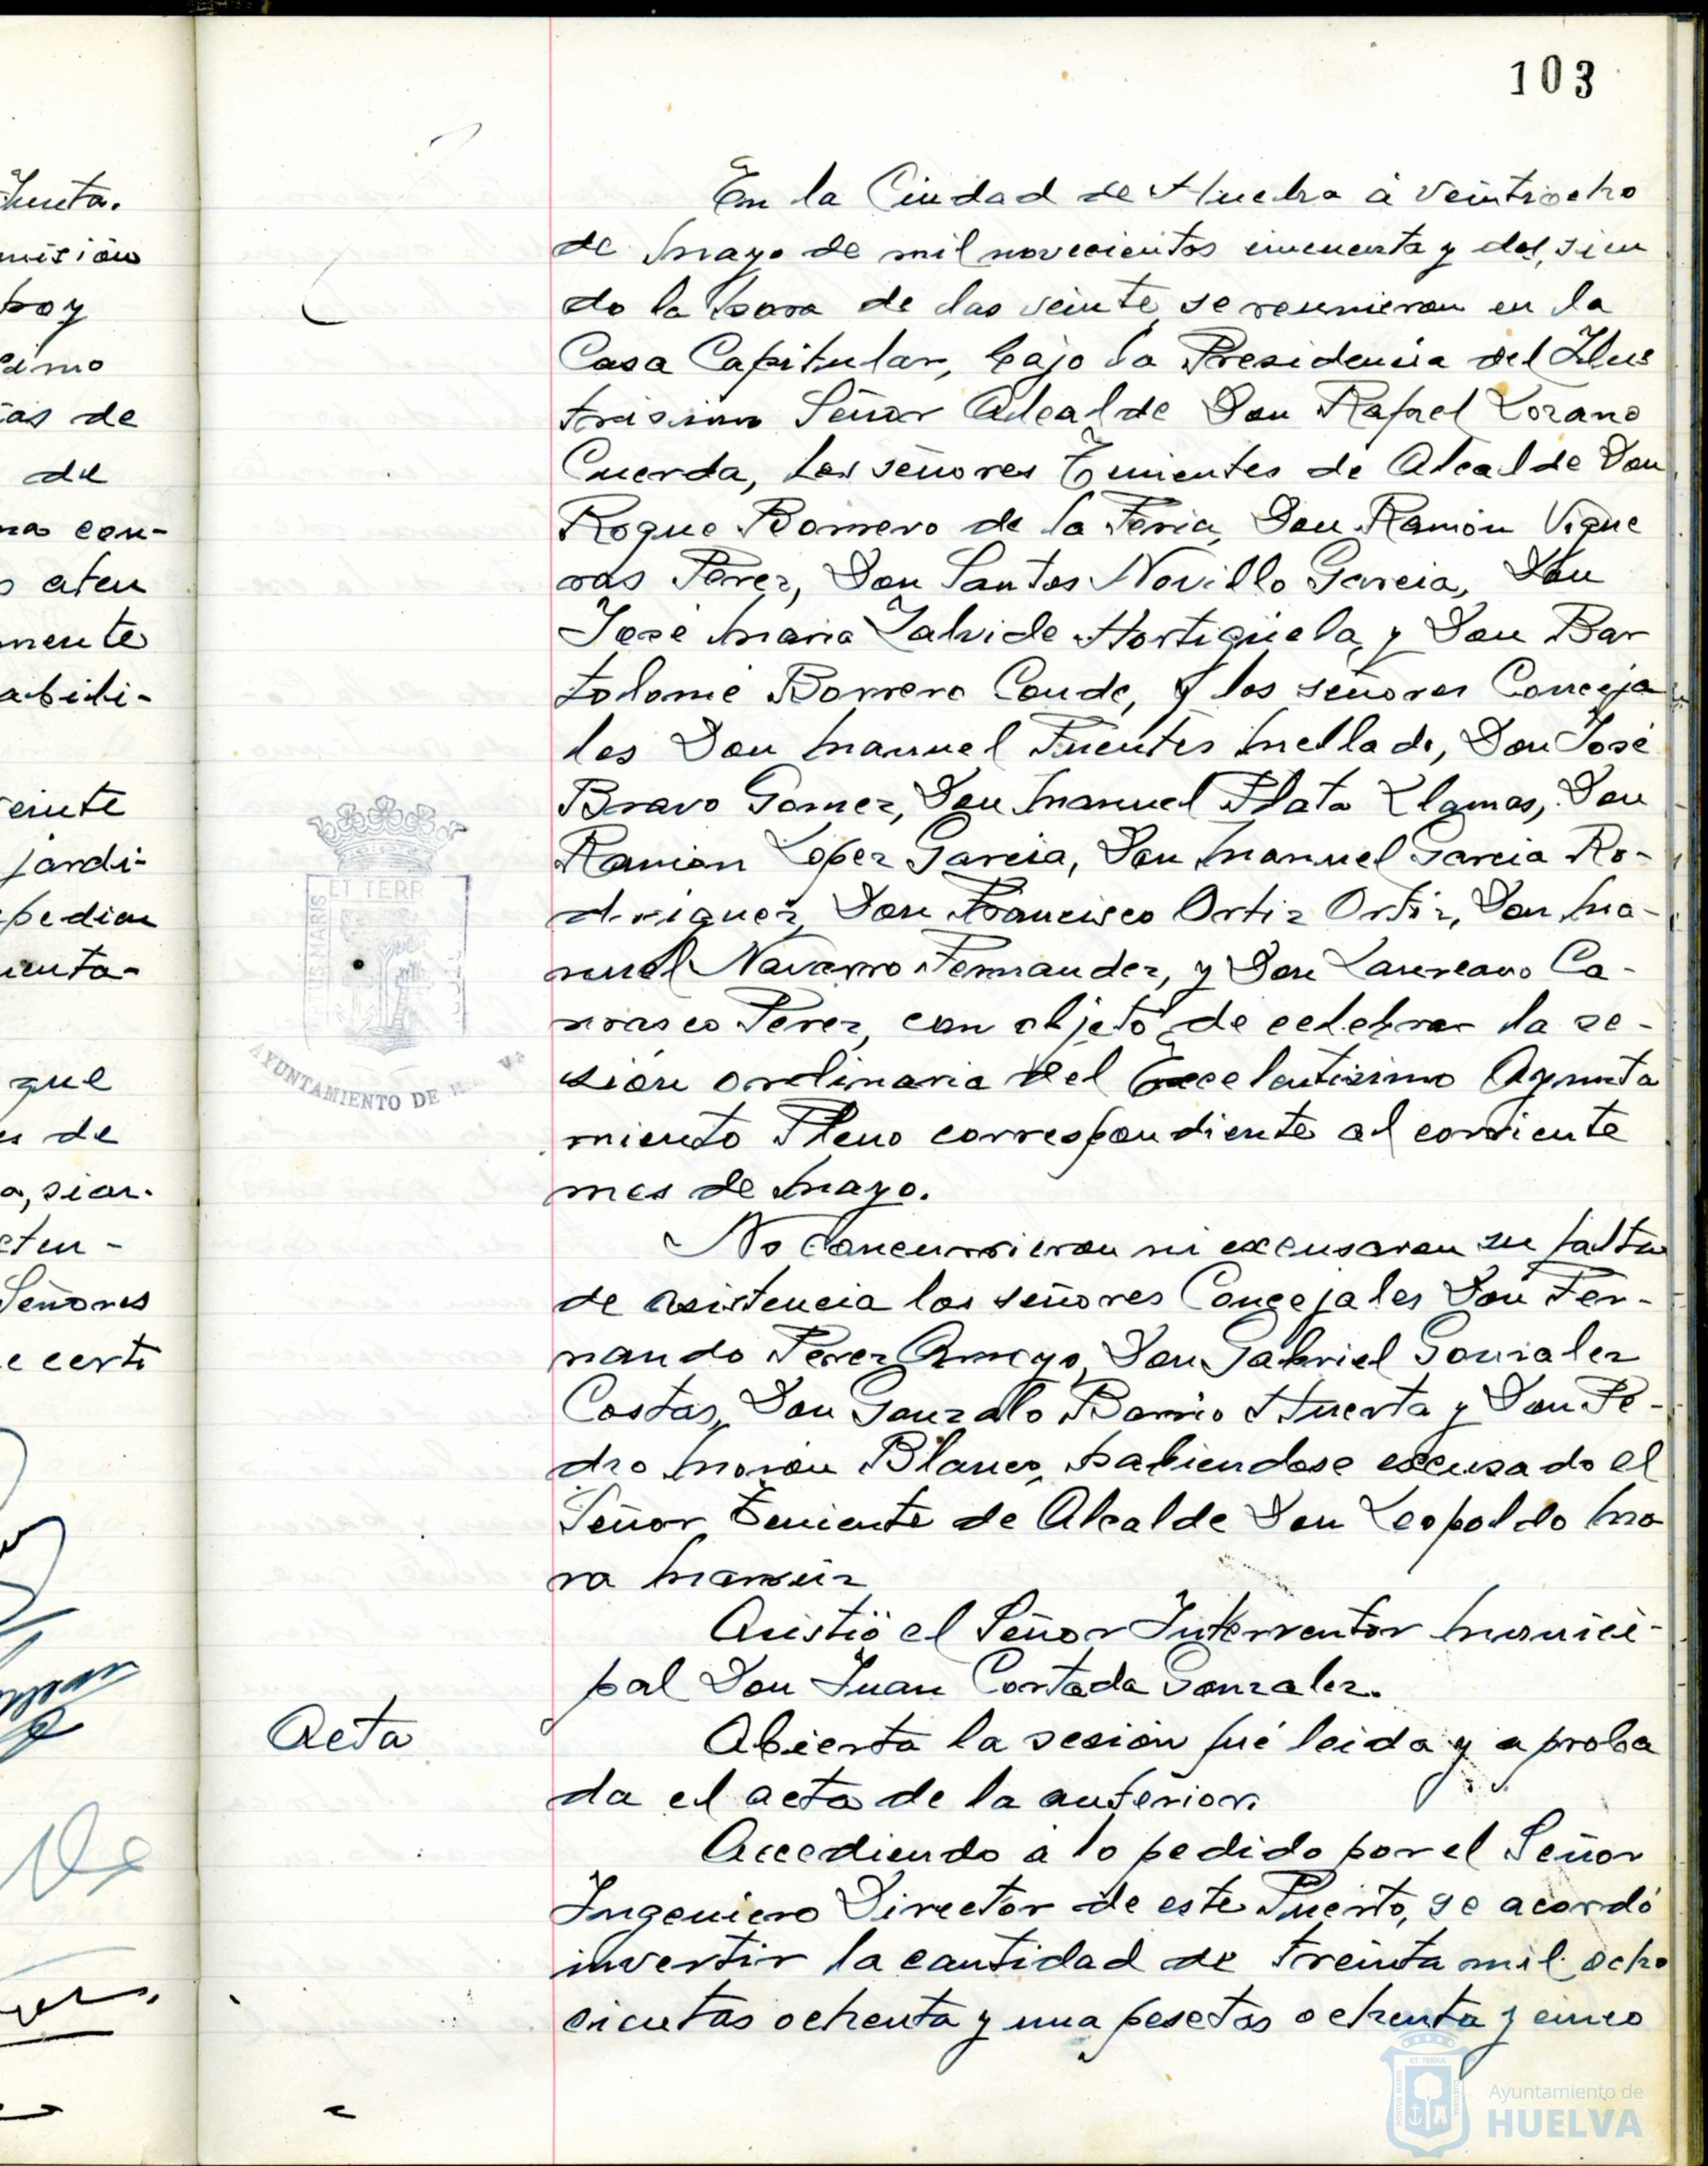 103
En la Ciudad de Huelva à veintiocho
de Mayo de mil novecientos cincuenta y dos, sien
do la hora de las veinte, se reunieron en la
Casa Capitular, bajo la Presidencia del Ilus
trisimo Señor Alcalde Don Rafael Lozano
Cuerda, los señores Tenientes de Alcalde Don
Roque Borrero de la Feria, Don Ramón Vigue
ras Perez, Don Santos Novillo Garcia, Don
José Maria Zalvide Hortigüela, y Don Bar
tolomé Borrero Conde, y los señores Conceja
les Don Manuel Fuentes Mellado, Don José
Bravo Gomez, Don Manuel Plata Llamas, Don
Ramon Lopez Garcia, Don Manuel Garcia Ro-
driguez, Don Francisco Ortiz Ortiz, Don Ma-
nuel Navarro Fernandez, y Don Laureano Ca-
rrasco Perez, con objeto de celebrar la se-
sión ordinaria del Excelentisimo Ayunta
miento Pleno correspondiente al corriente
mes de Mayo.
No concurrieron ni excusaron su falta
de asistencia los señores Concejales Don Fer-
nando Perez Arroyo, Don Gabriel Gonzalez
Costas, Don Gonzalo Barrio Huerta y Don Pe-
dro Morón Blanco, habiendose excusado el
Señor Teniente de Alcalde Don Leopoldo Mo
ra
Asistió el Señor Interventor Munici-
pal Don Juan Cortada Gonzalez.
Acta
Abierta la sesión fué leida y aproba
da el acta de la anterior.
Accediendo à lo pedido por el Señor
Ingeniero Director de este Puerto, se acordó
invertir la cantidad de treinta mil ocho
cientas ochenta y una pesetas ochenta y cinco
Junta.
misión
hoy
as de
de
con-
aten
mente
abili-
veinte
jardi-
pedien
que
de
Señores
e certi
ET TERR
AYUNTAMIENTO DE
Ayuntamiento de
HUELVA